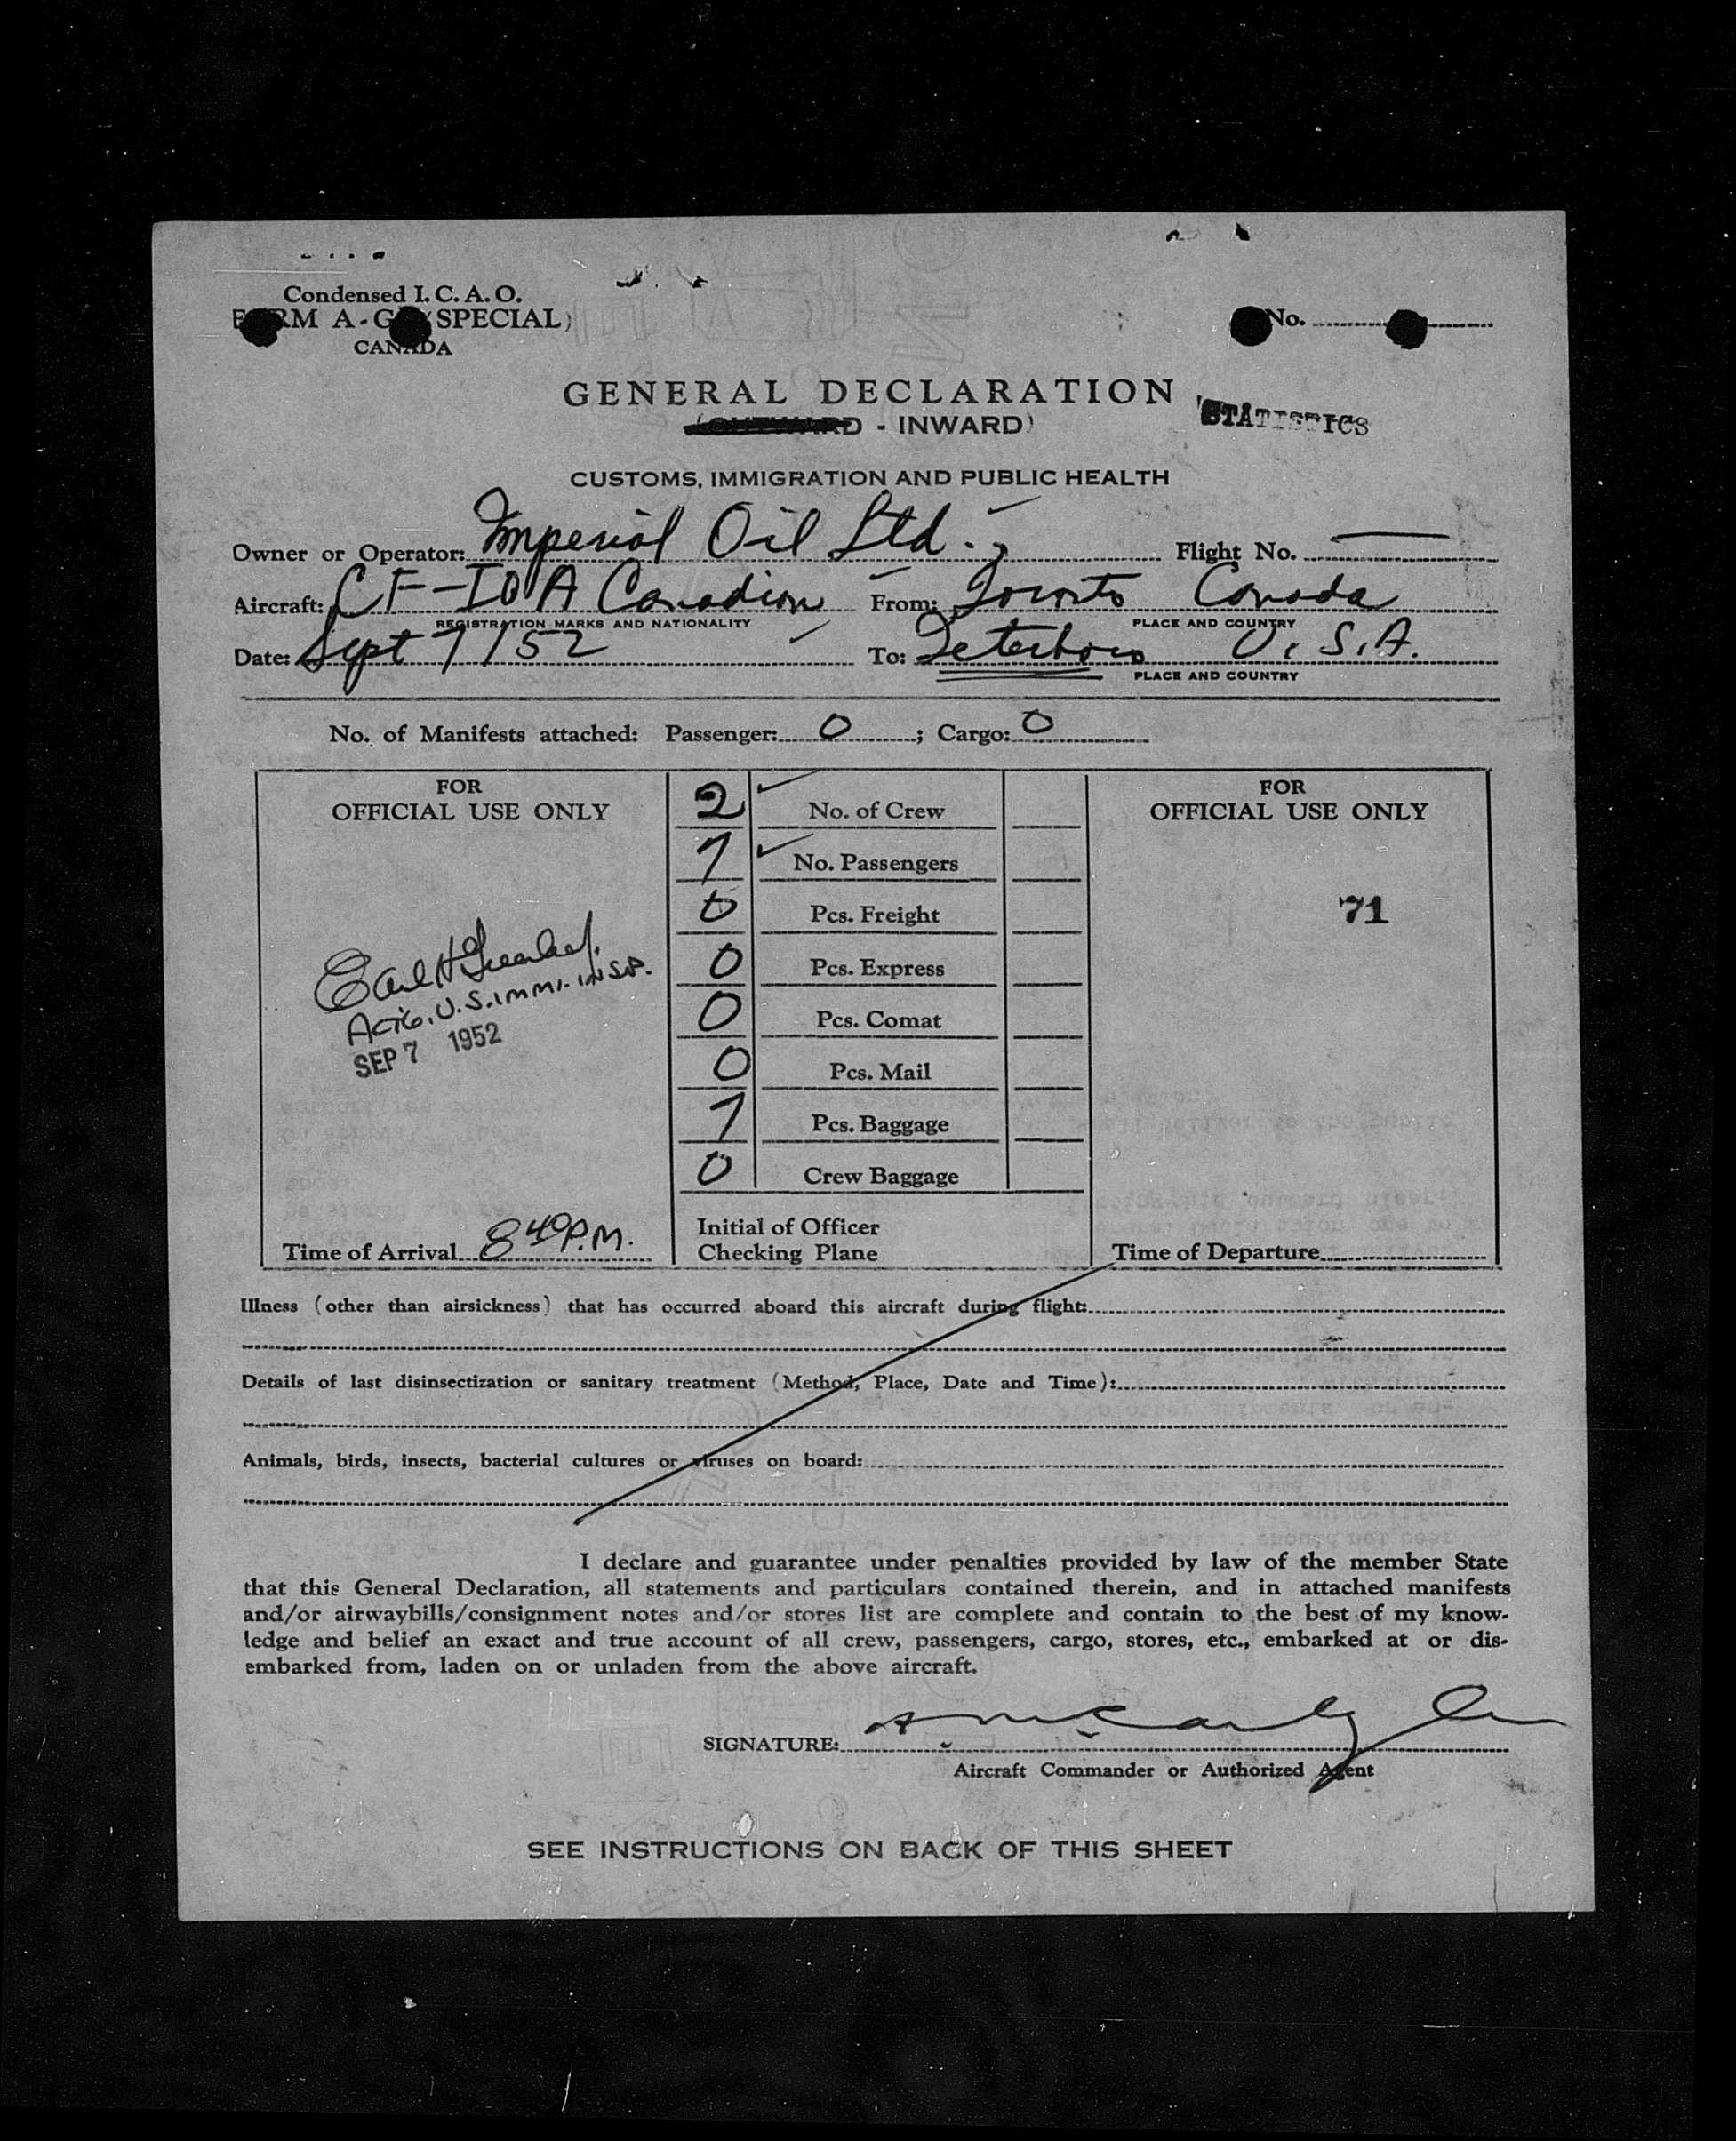 Condensed I. C. A. O.
FORM A-G (SPECIAL)
CANADA
No.
GENERAL DECLARATION
(OUTWARD - INWARD)
STATISTICS
CUSTOMS, IMMIGRATION AND PUBLIC HEALTH
Owner or Operator: Imperial Oil Ltd. Flight No. —
Aircraft: CF-IOA Canadian From: Toronto Canada
REGISTRATION MARKS AND NATIONALITY PLACE AND COUNTRY
Date: Sept 7/52 To: Teterboro U.S.A.
PLACE AND COUNTRY
No. of Manifests attached: Passenger: 0 ; Cargo: 0
FOR
OFFICIAL USE ONLY
Earl H
Actg. U.S. IMMI. INSP.
SEP 7 1952
Time of Arrival 8 40 P.M.
2 No. of Crew
7 No. Passengers
0 Pcs. Freight
0 Pcs. Express
0 Pcs. Comat
0 Pcs. Mail
7 Pcs. Baggage
0 Crew Baggage
Initial of Officer
Checking Plane
FOR
OFFICIAL USE ONLY
71
Time of Departure
Illness (other than airsickness) that has occurred aboard this aircraft during flight:
Details of last disinsectization or sanitary treatment (Method, Place, Date and Time):
Animals, birds, insects, bacterial cultures or viruses on board:
I declare and guarantee under penalties provided by law of the member State
that this General Declaration, all statements and particulars contained therein, and in attached manifests
and/or airwaybills/consignment notes and/or stores list are complete and contain to the best of my know-
ledge and belief an exact and true account of all crew, passengers, cargo, stores, etc., embarked at or dis-
embarked from, laden on or unladen from the above aircraft.
SIGNATURE:
Aircraft Commander or Authorized Agent
SEE INSTRUCTIONS ON BACK OF THIS SHEET